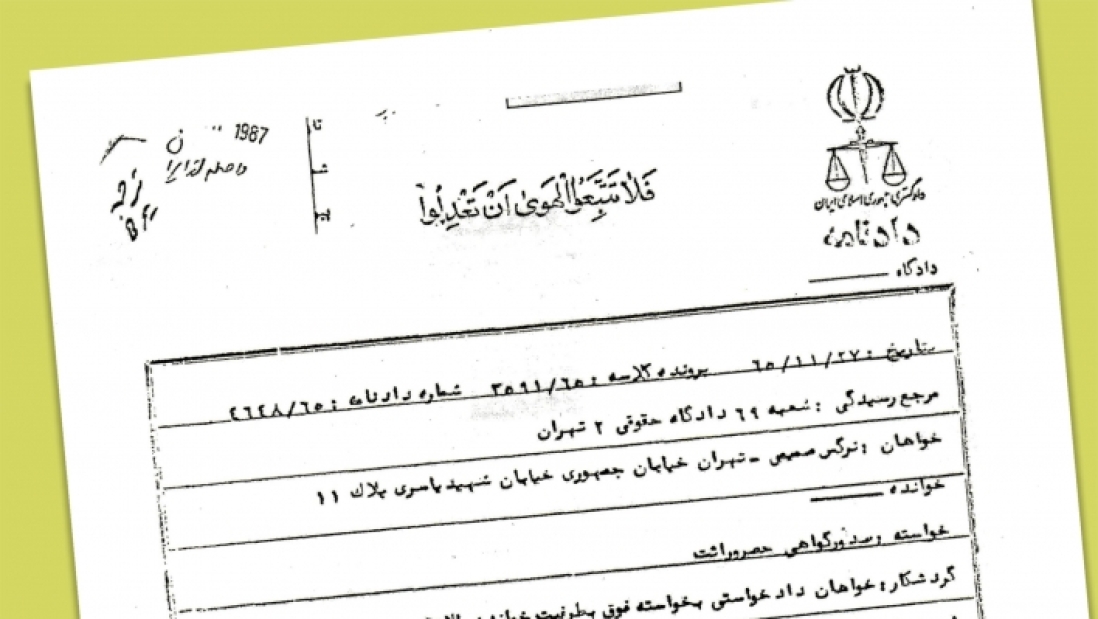 1987
فَلا تَتَّبِعُوا الْهَوىٰ اَنْ تَعْدِلُوا
دادگستری جمهوری اسلامی ایران
دادنامه
دادگاه
بتاریخ : ۶۵/۱۱/۲۷ پرونده کلاسه : ۳۵۹۱/۶۵ شماره دادنامه : ۴۶۴۸/۶۵
مرجع رسیدگی : شعبه ۶۹ دادگاه حقوقی ۲ تهران
خواهان : نرگس صمیمی - تهران خیابان جمهوری خیابان شهید یاسری پلاک ۱۱
خوانده
خواسته : صدور گواهی حصر وراثت
گردشکار : خواهان دادخواستی بخواسته فوق بطرفیت